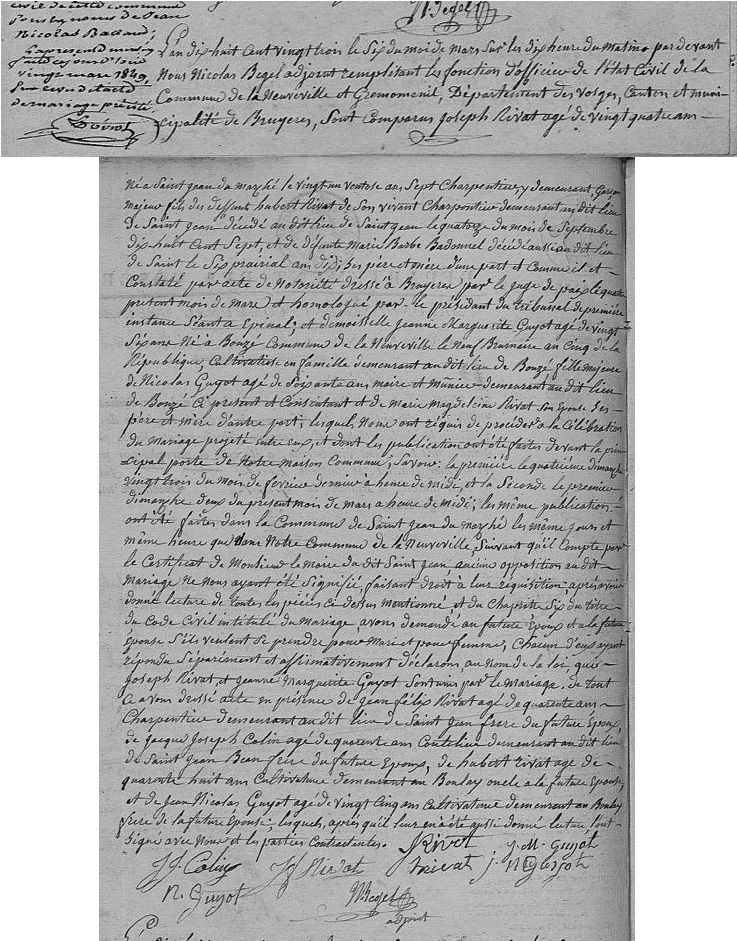 civil de cette commune
pour les noms de Jean
Nicolas
vingt mars 1849,
de mariage
NBegel
L'an dix huit cent vingt trois le Six du moi de mars sur les dix heure du matino par devant
Nous Nicolas Begel adjoint remplitant les fonction d'officier de l'état Civil de la
Commune de la Neuveville et Gremomenil, Département des vosges, Canton et muni-
cipalité de Bruyeres, Sont Comparus Joseph Rivat agé de vingt quatre ans
né a Saint jean du marché le vingt un ventose an Sept Charpentier y demeurant, Garçon
majeur fils des deffunts hubert Rivat de Son vivant Charpentier demeurant au dit lieu
de Saint jean décédé au dit lieu de Saint jean le quatorze du mois de Septembre
dix huit Cent Sept, et de défunte Marie Barbe Badonnel décédé aussi au dit lieu
de Saint le Six prairial ans dix, Ses père et mère d'une part et Comme il et
Constaté par acte de Notoriété dressé à Bruyeres par le juge de paix le quatre
présent mois de mars et homologué par le président du tribunal de première
instance Séant a Epinal; et demoiselle jeanne Marguerite Guyot agé de vingt
Six ans Né a Bouzé Commune de la Neuveville le Neuf Brumaire an Cinq de la
République, Cultivatrise en famille demeurant au dit lieu de Bouzé, fille majeure
de Nicolas Guyot agé de Soixante ans maire et demeurant au dit lieu
de Bouzé Ci présent et Consentant et de Marie Magdeleine Rivat Son Epouse Ses
père et mère d'autre part; lesquels Nous ont requis de procéder a la Célébration
du Mariage projeté entre eux, et dont les publication ont été faites devant la prin-
cipal porte de Notre maison Commune, Savoir: la première le quatrième dimanche
vingt trois du mois de fevrier dernier à heure de midi, et la Seconde le premier
dimanche deux du présent mois de mars a heure de midi; les même publication
ont été faites dans la Commune de Saint jean du marché les même jours et
même heure que dans Notre Commune de la Neuveville, Suivant qu'il Compte par
le Certificat de Monsieur le Maire du dit Saint jean, aucune opposition au dit
Mariage ne nous ayant été Signifié, faisant droit à leur requisition; après avoir
donné lecture de toutes les pièces ci dessus mentionné et du Chapitre Six du titre
du Code Civil intitulé du Mariage, avons demandé au future Epoux et a la future
épouse S'ils veulent Se prendre pour Mari et pour femme, Chacun d'eux ayant
répondu Séparément et affirmativement déclarons, au Nom de la loi, que
Joseph Rivat, et jeanne Marguerite Guyot Sont unis par le Mariage. de tout
Ce avons dressé acte en présence de jean félix Rivat agé de quarente ans
Charpentier demeurant au dit lieu de Saint jean frere du future Epoux,
de jacque Joseph Colin agé de quarente ans Coutelier demeurant au dit lieu
de Saint jean Beau frère du future Epoux, de hubert Rivat agé de
quarante huit ans Cultivateur demeurant au Boulay oncle a la future Epouse,
et de Jean Nicolas Guyot agé de vingt Cinq ans Cultivateur demeurant au Boulay
frere de la future Epouse; lesquels, après qu'il leur en a été aussi donné lecture l'ont
Signé avec Nous et les parties Contractantes.
JRivat J. M. Guyot
JJ. Colin JF Rivat hrivat j. N Guyot
N. Guyot NBegel
adjoint